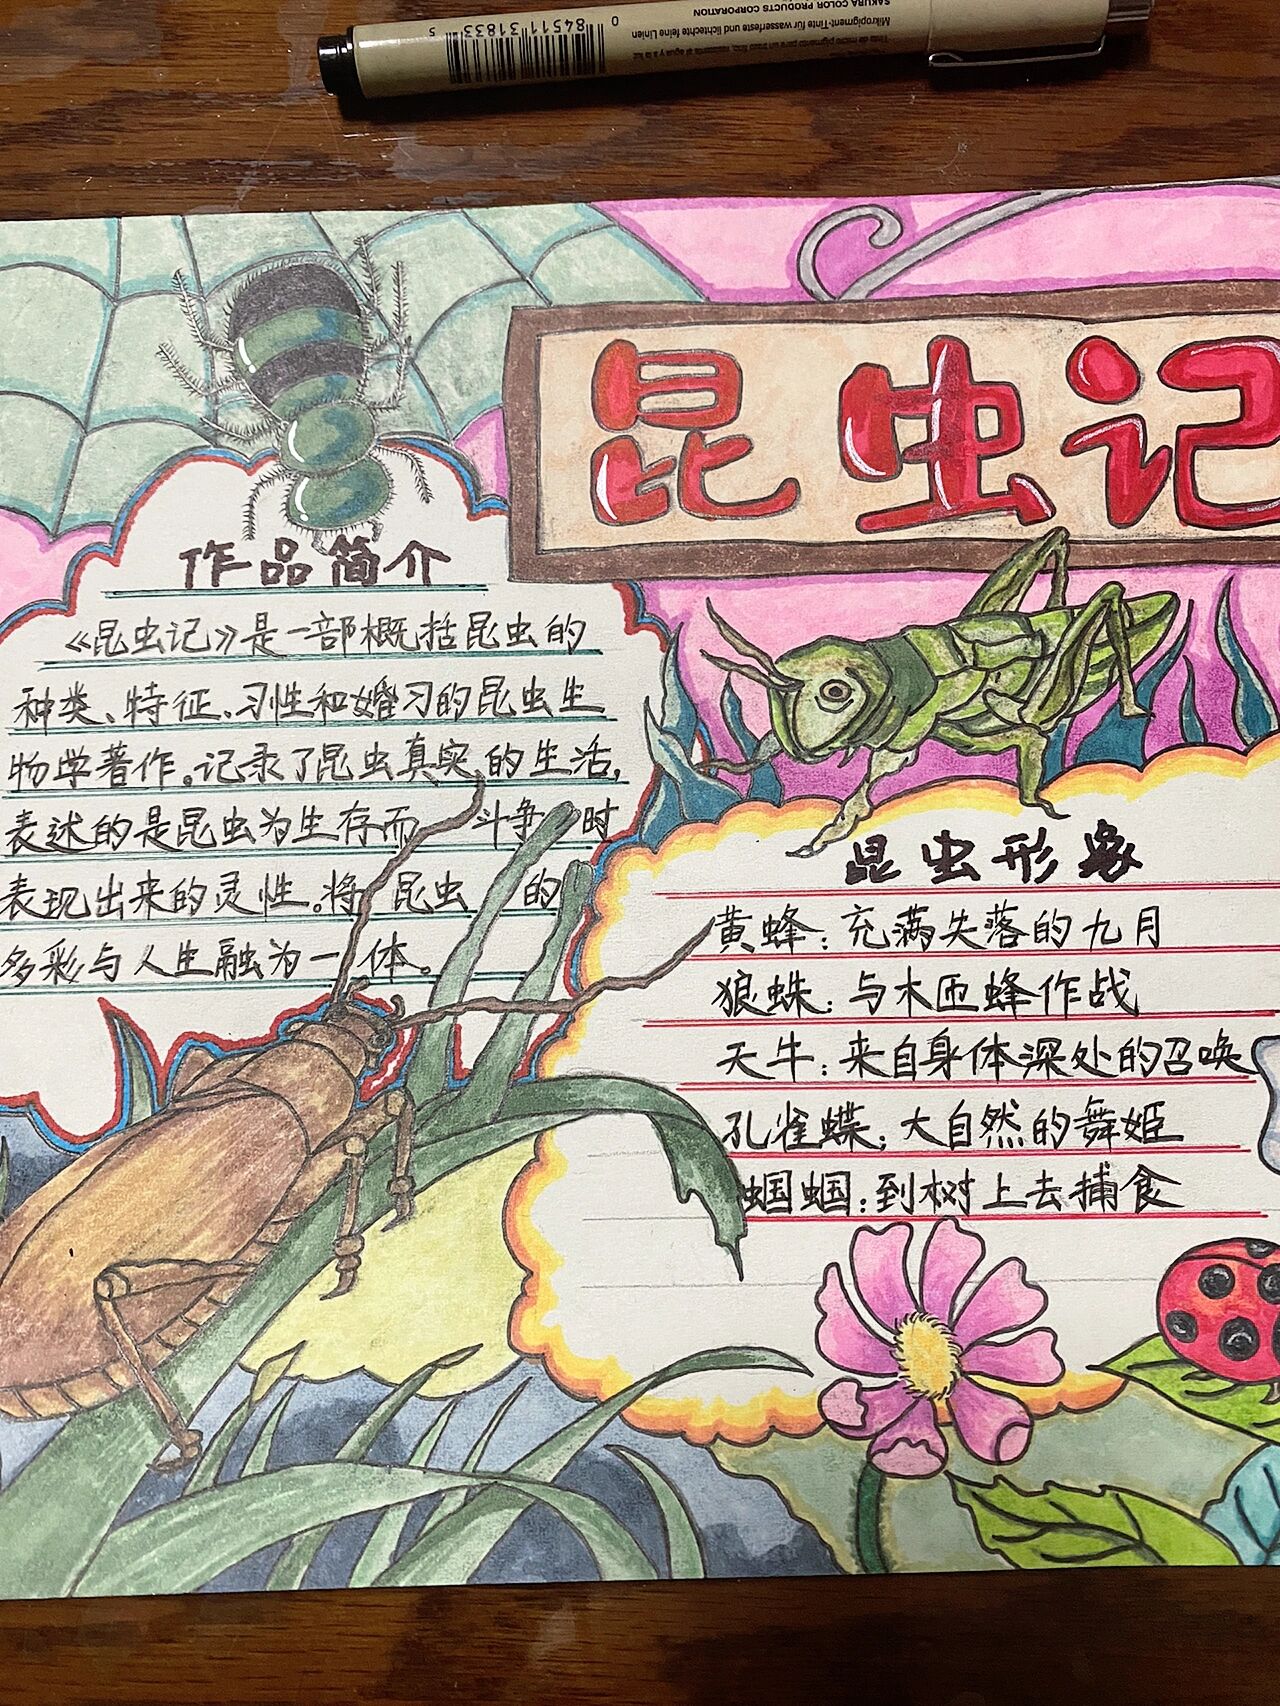 SAKURA COLOR PRODUCTS CORPORATION
Mikropigment-Tinte für wasserfeste und lichtechte feine Linien
0 84511 31833 5
昆虫记
作品简介
《昆虫记》是一部概括昆虫的
种类、特征、习性和婚习的昆虫生
物学著作。记录了昆虫真实的生活,
表述的是昆虫为生存而 斗争 时
表现出来的灵性。将 昆虫 的
多彩与人生融为一体。
昆虫形象
黄蜂:充满失落的九月
狼蛛:与木匠蜂作战
天牛:来自身体深处的召唤
孔雀蝶:大自然的舞姬
蝈蝈:到树上去捕食